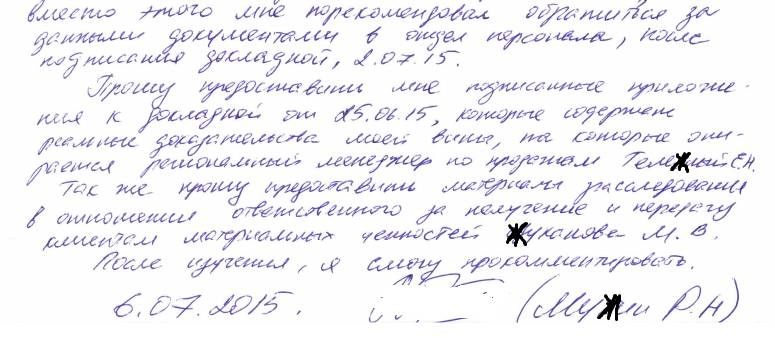 вместо этого мне порекомендовал обратиться за
данными документами в отдел персонала, после
подписания докладной, 2.07.15.
Прошу предоставить мне подписанные приложе-
ния к докладной от 25.06.15, которые содержат
реальные доказательства моей вины, на которые опи-
рается региональный менеджер по продажам Е.Н.
Так же прошу предоставить материалы расследования
в отношении ответственного за получение и передачу
клиентам материальных ценностей М.В.
После изучения, я смогу прокомментировать.
6.07.2015. ( Р.Н)